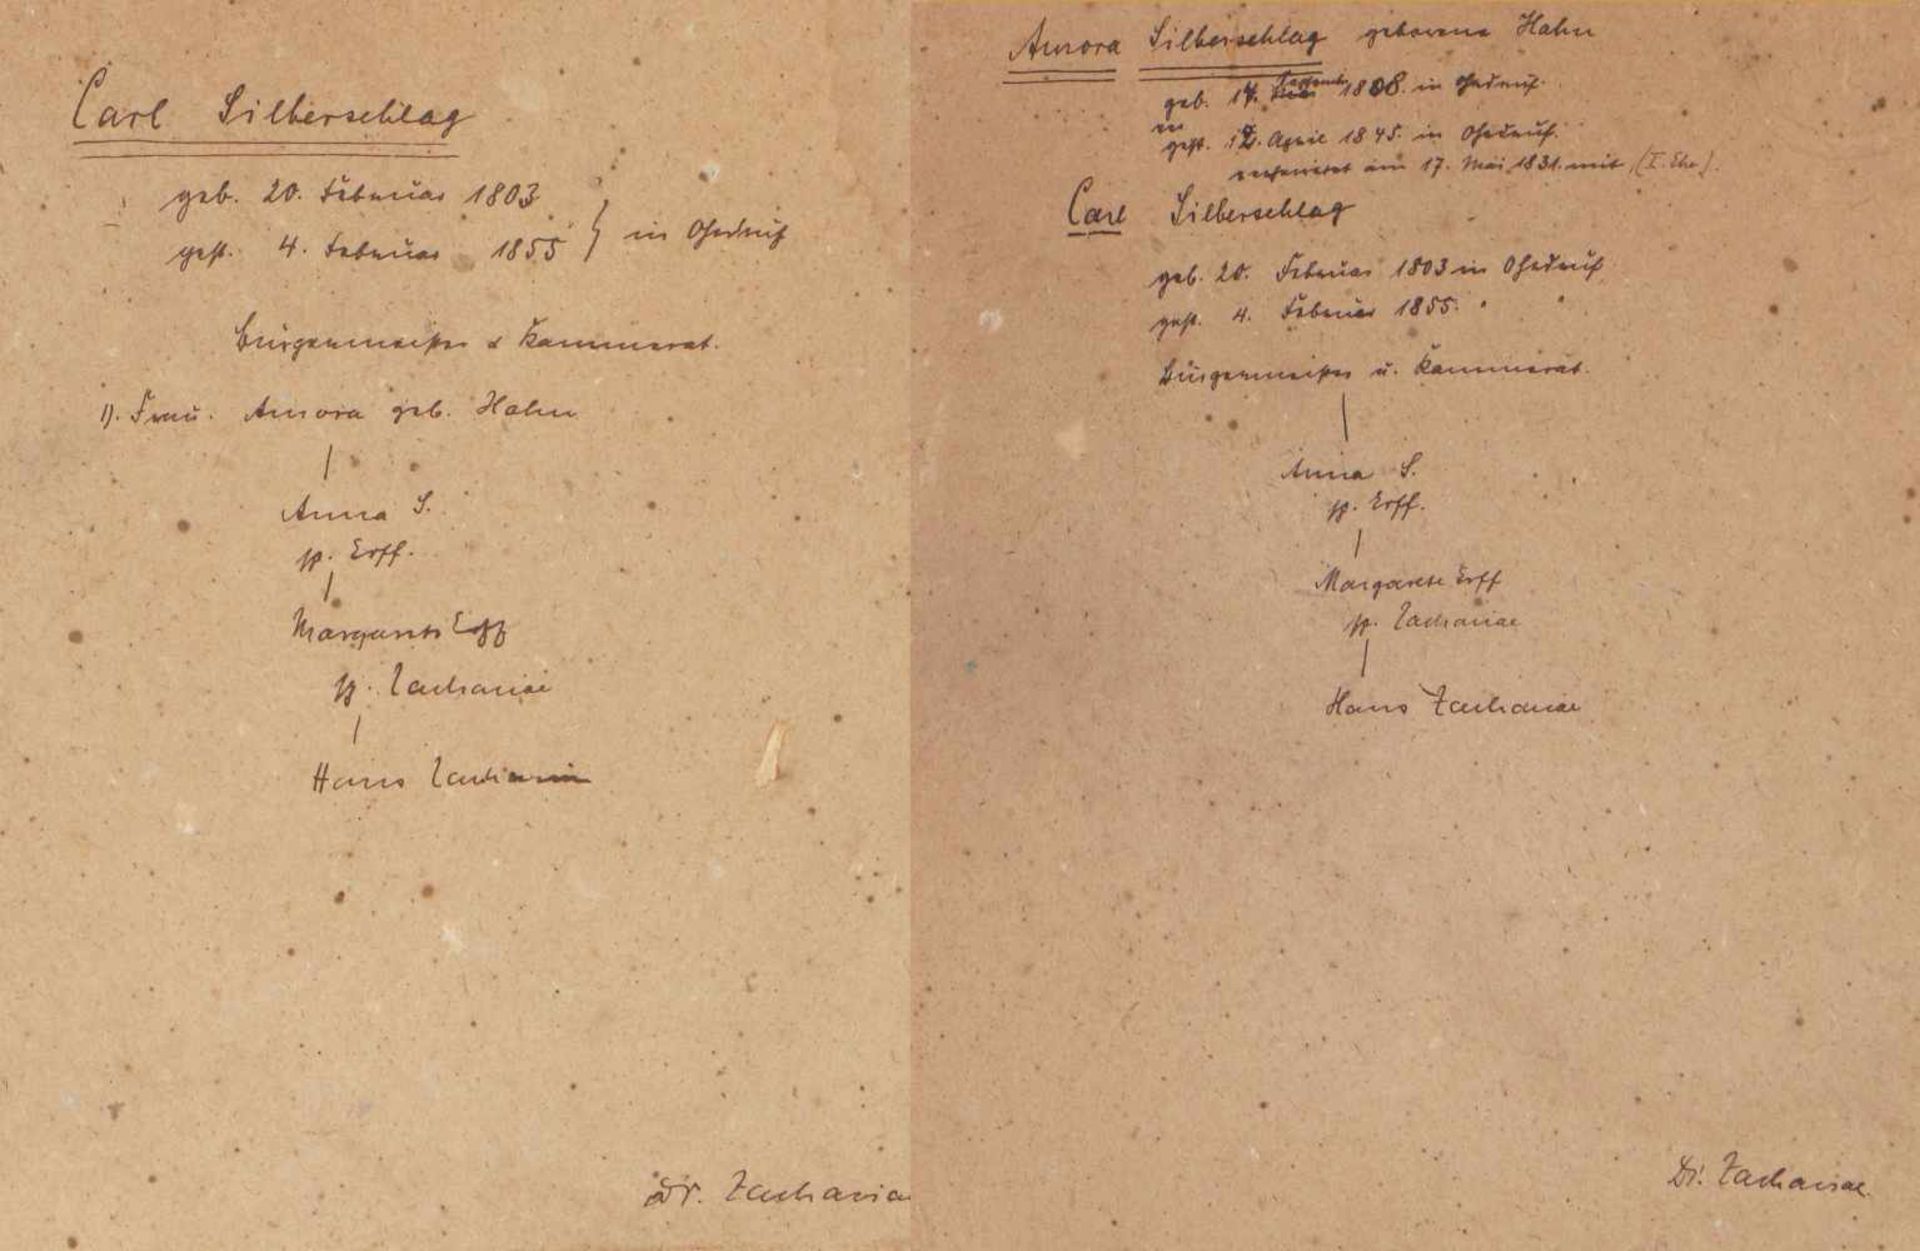 Carl Silberschlag
geb. 20. Februar 1803
gest. 4. Februar 1855 } in Ohrdruf
Bürgermeister & Kammerrat.
1). Frau. Aurora geb. Hahn
Anna S.
sp. Erff.
Margarete Erff
sp. Zachariae
Hans Zachariae
Dr. Zachariae
Aurora Silberschlag geborene Hahn
geb. 14. September 1808. in Ohrdruf.
gest. 12. April 1845. in Ohrdruf.
verheiratet am 17. Mai 1831. mit (I. Ehe).
Carl Silberschlag
geb. 20. Februar 1803 in Ohrdruf
gest. 4. Februar 1855. "
Bürgermeister u. Kammerrat.
Anna S.
sp. Erff.
Margarete Erff
sp. Zachariae
Hans Zachariae
Dr. Zachariae.